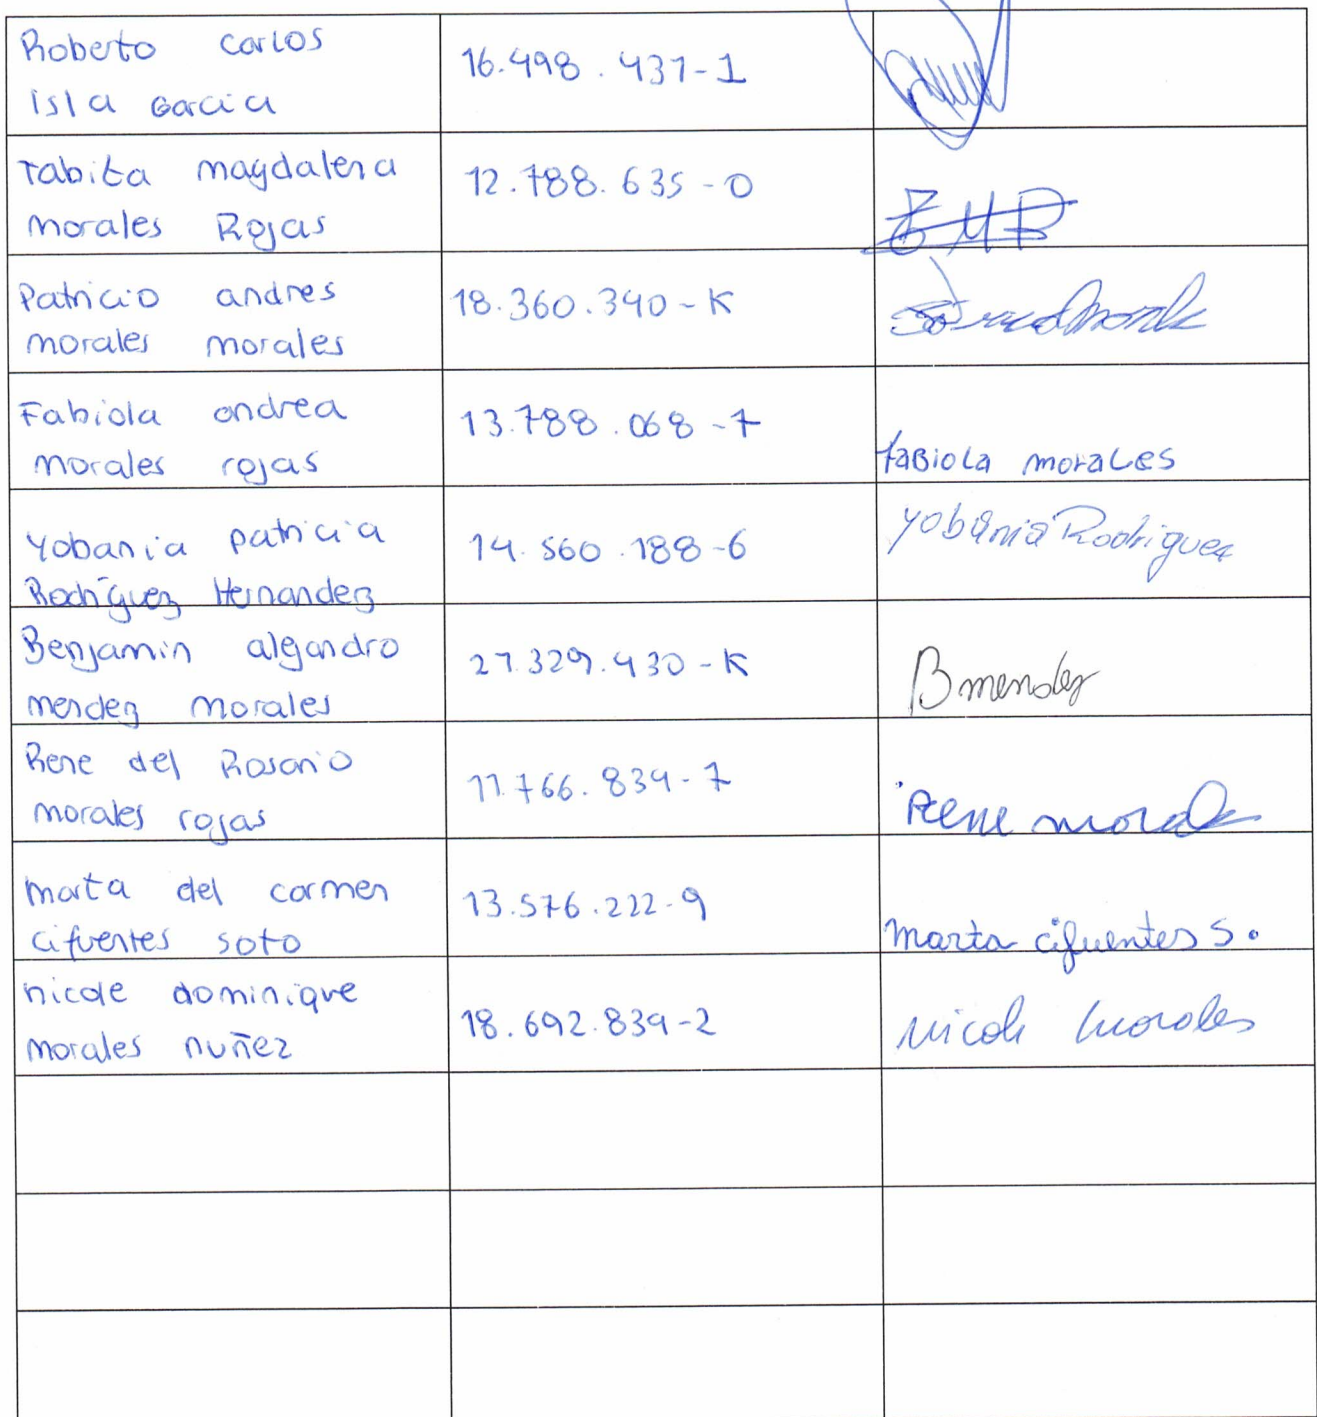 Roberto carlos
isla Garcia
16.498.431-1
Tabita magdalena
morales Rojas
12.788.635-0
Patricio andres
morales morales
18.360.340-K
Fabiola andrea
morales rojas
13.788.068-7
fabiola morales
Yobania patricia
Rodríguez Hernandez
14.560.188-6
Yobania Rodriguez
Benjamin alejandro
mendez morales
27.329.430-K
B mendez
Rene del Rosario
morales rojas
11.766.839-7
Rene morales
marta del carmen
cifuentes soto
13.576.222-9
marta cifuentes S.
nicole dominique
morales nuñez
18.692.839-2
Nicole Morales